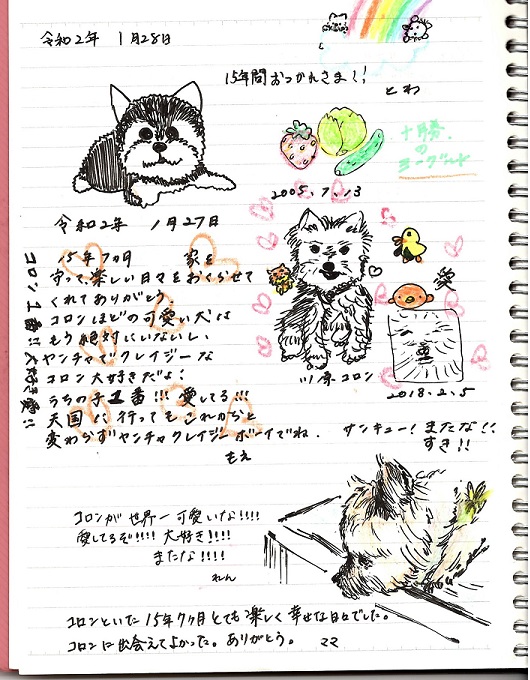 令和2年 1月28日
15年間おつかれさま!!
とわ
十勝
の
ヨーグルト
2005.7.13
令和2年 1月27日
15年7カ月 家を
守って楽しい日々をおくらせて
くれてありがとう
コロンほどの可愛い犬は
もう絶対にいないし、
ヤンチャでクレイジーな
コロン大好きだよ!
うちの子1番!!! 愛してる!!!
天国に行ってもこれからと
変わらずヤンチャクレイジーボーイでね.
もえ
コロン1番!!大好き愛!!
愛
川原コロン
2018.2.5
サンキュー! またな!!
すき!!
コロンが世界一可愛いな!!!!
愛してるぞ!!!! 大好き!!!!
またな!!!!
れん
コロンといた15年7ヶ月とても楽しく幸せな日々でした。
コロンに出会えてよかった。ありがとう。